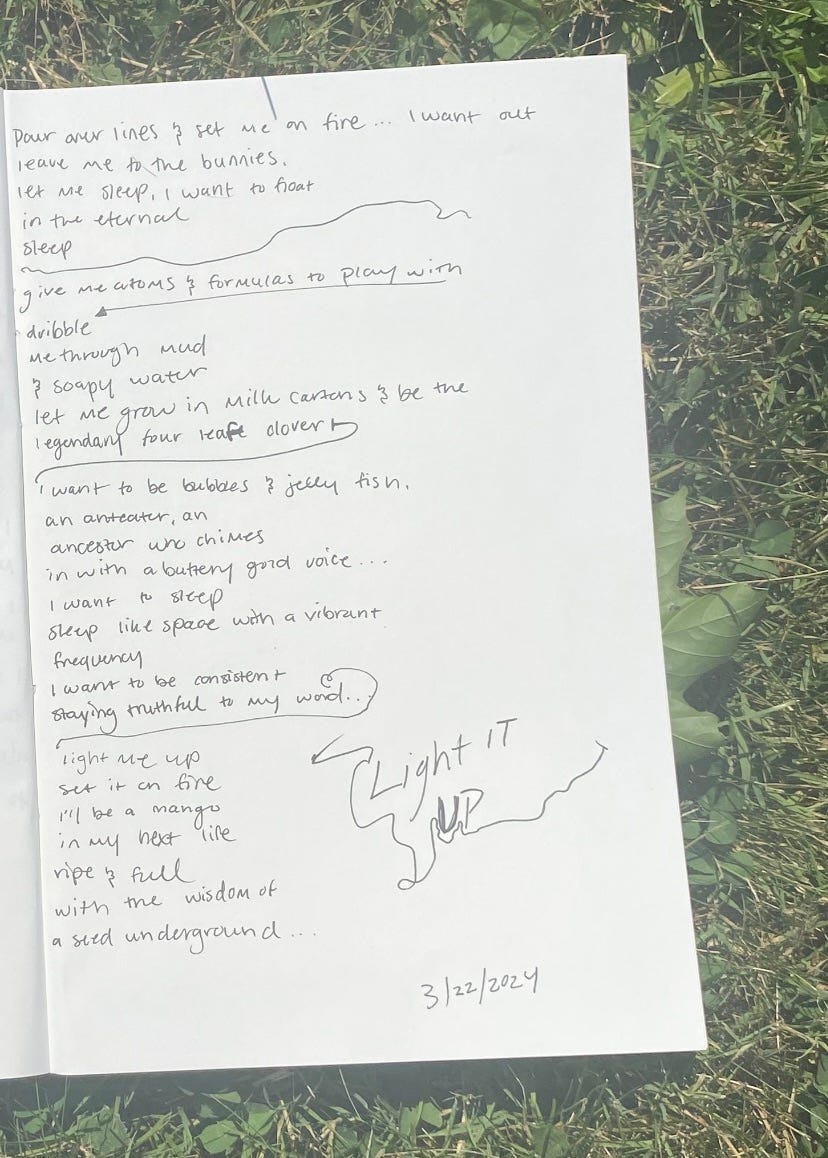 Pour over lines & set me on fire... I want out
leave me to the bunnies.
let me sleep, I want to float
in the eternal
sleep
give me atoms & formulas to play with
dribble
me through mud
& soapy water
let me grow in milk cartons & be the
legendary four leaf clover
I want to be bubbles & jelly fish.
an anteater, an
ancestor who chimes
in with a buttery gold voice...
I want to sleep
sleep like space with a vibrant
frequency
I want to be consistent
staying truthful to my word...
light me up
set it on fire
I'll be a mango
in my next life
ripe & full
with the wisdom of
a seed underground...
Light IT
UP
3/22/2024